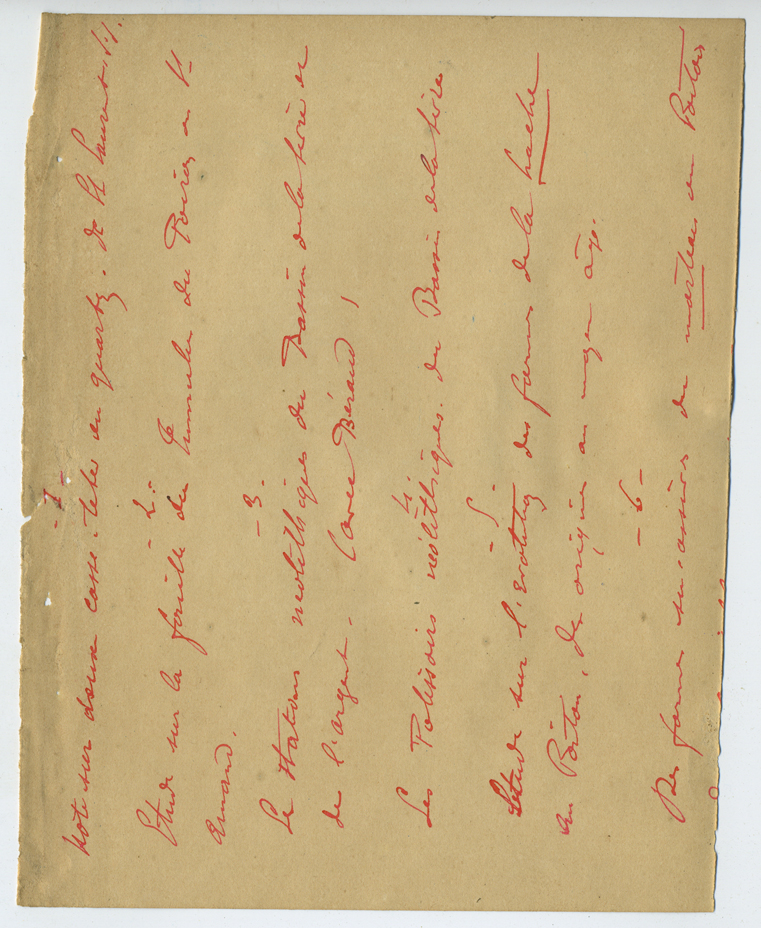 - 1 -
Note sur douze casse-têtes en quartz. de St Laurent s.s.
- 2 -
Etude sur la fouille du Tumulus du Poiron en St
Amand.
- 3 -
Le Stations néolithiques du Bassin de la Sèvre et
de l'argent. (avec Béraud)
- 4 -
Les Polissoirs néolithiques. du Bassin de la Sèvre
- 5 -
Etude sur l'Evolution des formes de la hache
en Poitou, des origines au moyen âge.
- 6 -
Des formes successives du marteau en Poitou